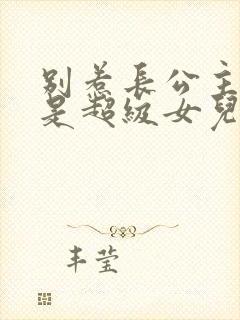 别惹長公主
是超級女兒
丰莹